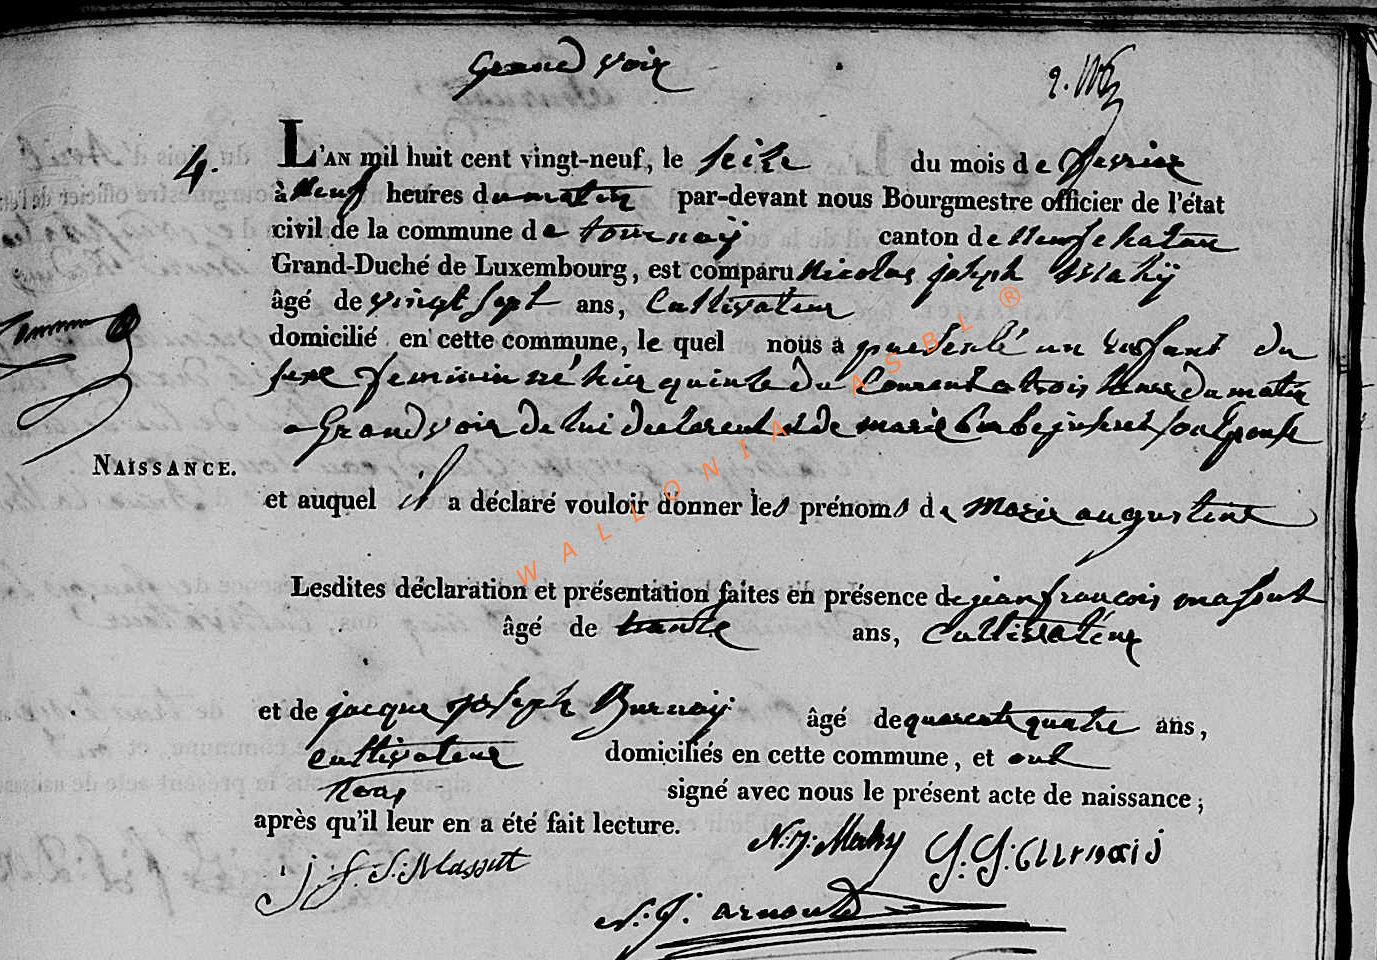 Grand voir
4.
L'AN mil huit cent vingt-neuf, le seize du mois de fevrier
à neuf heures du matin par-devant nous Bourgmestre officier de l'état
civil de la commune de tournay canton de neufchateau
Grand-Duché de Luxembourg, est comparu Nicolas joseph Mahy
âgé de vingt sept ans, Cultivateur
domicilié en cette commune, le quel nous a presenté un enfant du
sexe feminin né hier quinze du Courant a trois heures du matin
a Grandvoir de lui declarent et de marie son Epouse
NAISSANCE.
et auquel il a déclaré vouloir donner les prénoms de marie augustine
Lesdites déclaration et présentation faites en présence de jean francois massut
âgé de trente ans, Cultivateur
et de jacque joseph âgé de quarente quatre ans,
cultivateur domiciliés en cette commune, et ont
tous signé avec nous le présent acte de naissance ;
après qu'il leur en a été fait lecture.
N. J. Mahy
J. F. S. Massut
N. J. arnould
WALLONIA ASBL ®